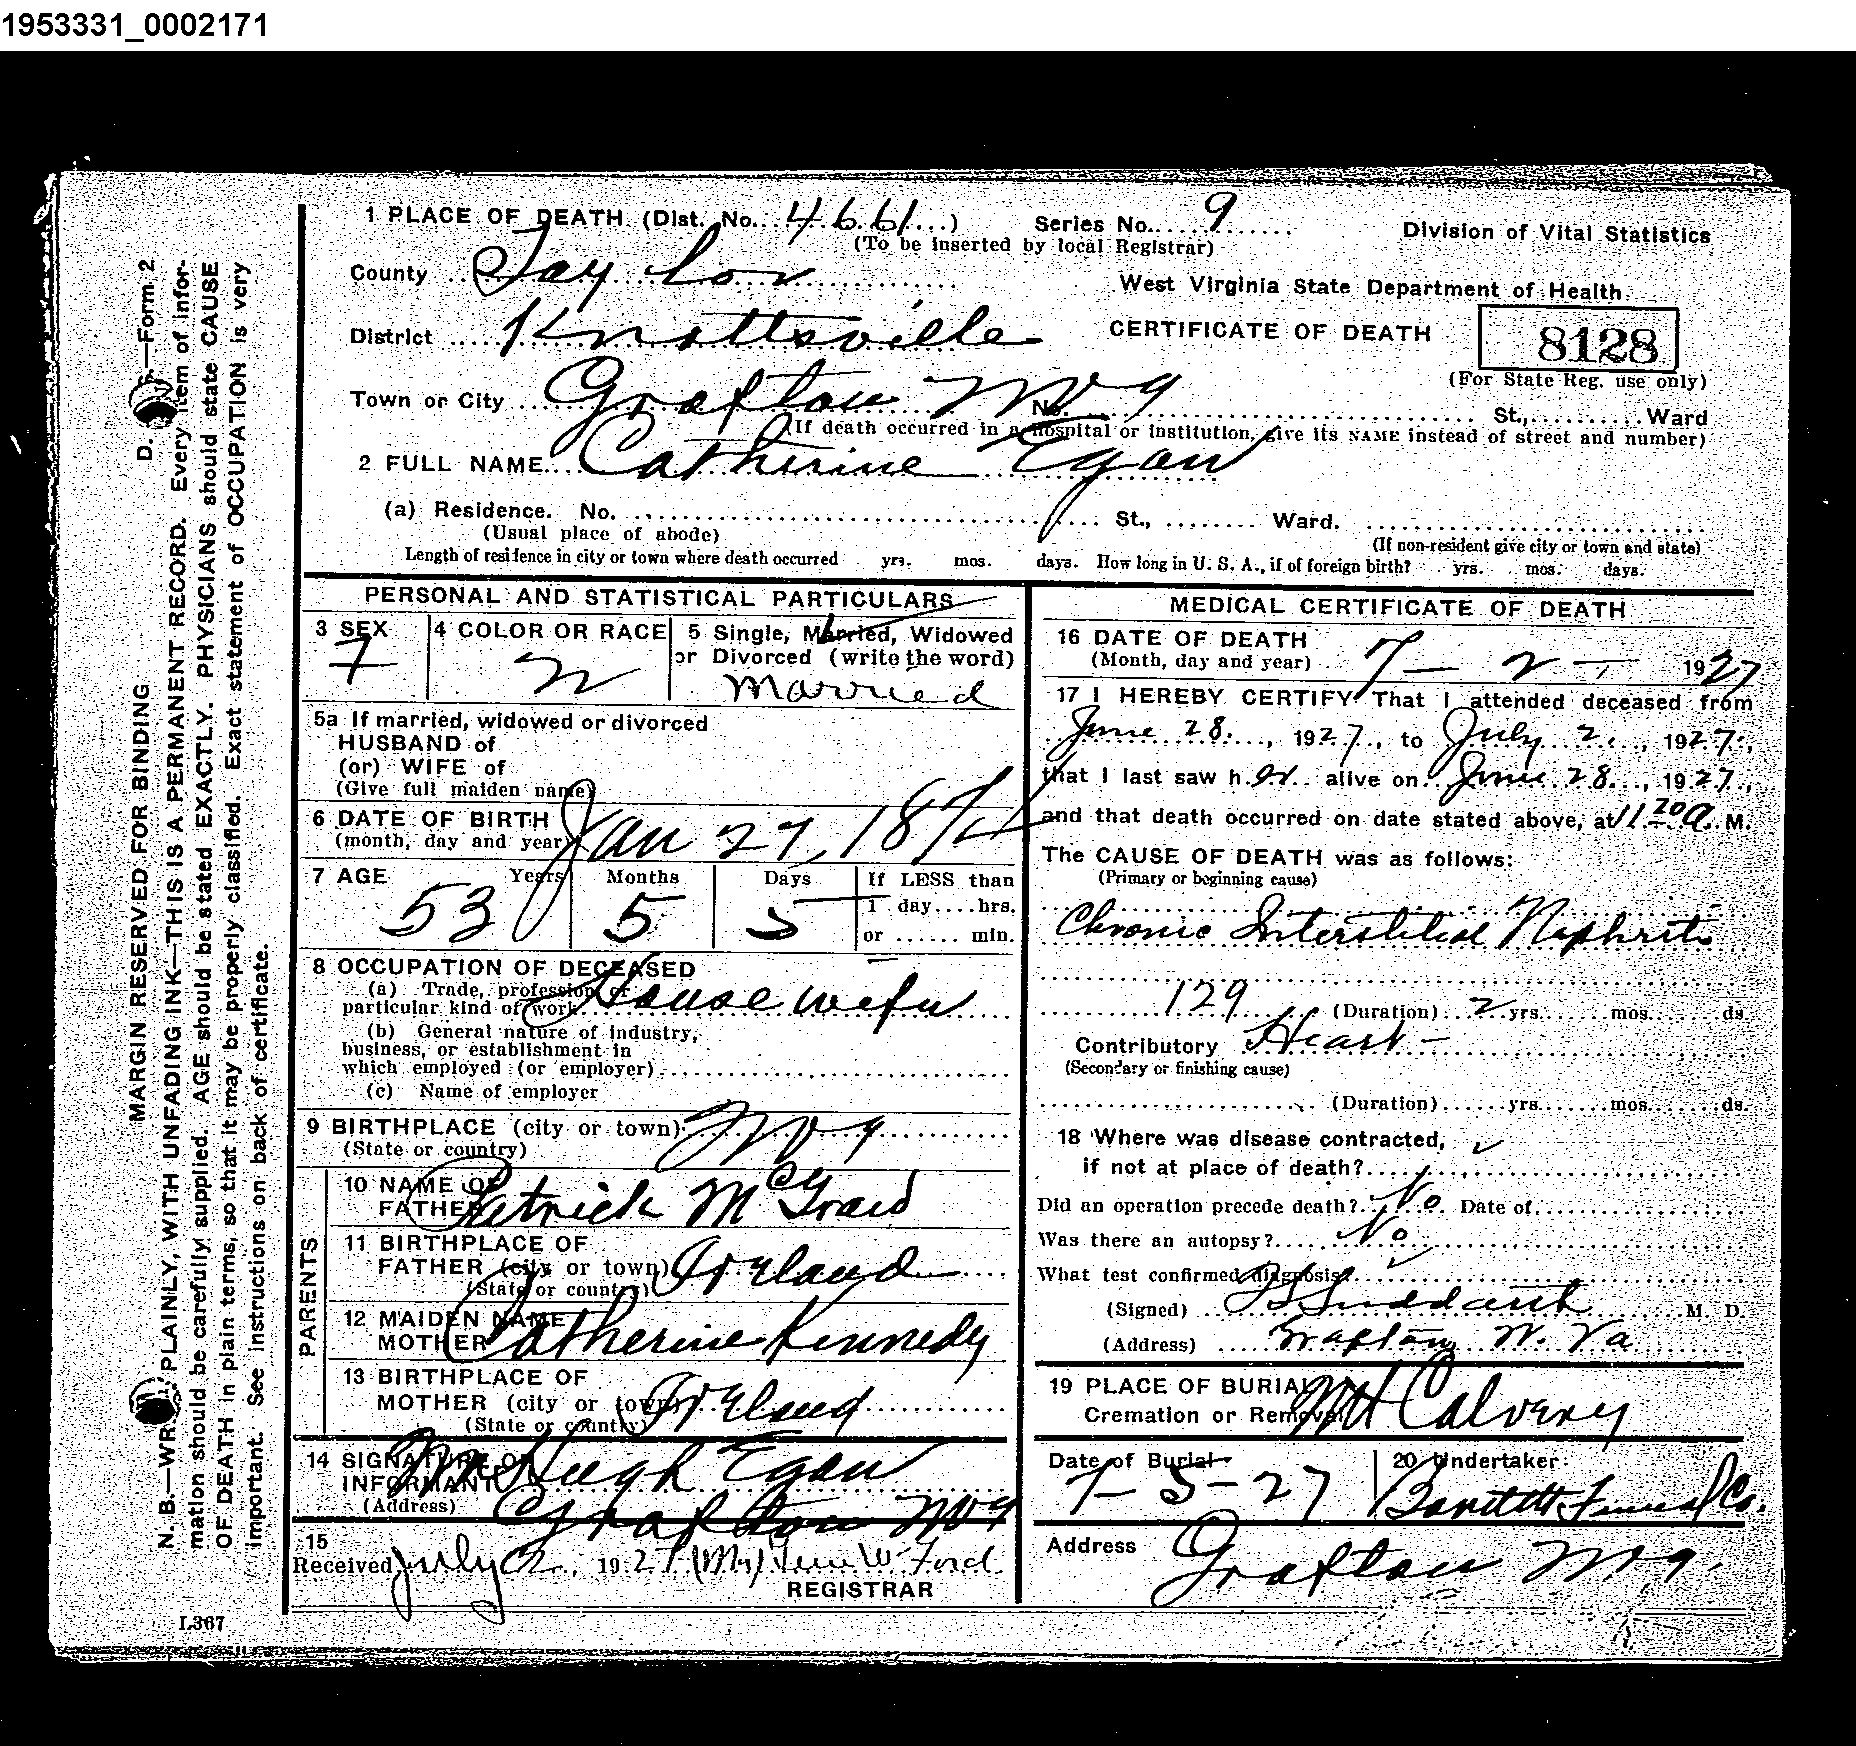 1953331_0002171
1 PLACE OF DEATH (Dist. No. 4661) Series No. 9 Division of Vital Statistics
(To be inserted by local Registrar)
County Taylor
West Virginia State Department of Health
District Knottsville CERTIFICATE OF DEATH 8128
(For State Reg. use only)
Town or City Grafton W Va No. St., Ward
(If death occurred in a hospital or institution, give its NAME instead of street and number)
2 FULL NAME Catherine Egan
(a) Residence. No. St., Ward.
(Usual place of abode) (If non-resident give city or town and state)
Length of residence in city or town where death occurred yrs. mos. days. How long in U. S. A., if of foreign birth? yrs. mos. days.
PERSONAL AND STATISTICAL PARTICULARS
3 SEX 4 COLOR OR RACE 5 Single, Married, Widowed
or Divorced (write the word)
F W Married
5a If married, widowed or divorced
HUSBAND of
(or) WIFE of
(Give full maiden name)
6 DATE OF BIRTH Jan 27, 1874
(month, day and year)
7 AGE Years Months Days If LESS than
1 day....hrs.
or ...... min.
53 5 5
8 OCCUPATION OF DECEASED
(a) Trade, profession or
particular kind of work House wife
(b) General nature of industry,
business, or establishment in
which employed (or employer)
(c) Name of employer
9 BIRTHPLACE (city or town) W Va
(State or country)
PARENTS
10 NAME OF
FATHER Patrick McGraw
11 BIRTHPLACE OF
FATHER (city or town) Ireland
(State or country)
12 MAIDEN NAME
MOTHER Catherine Kennedy
13 BIRTHPLACE OF
MOTHER (city or town) Ireland
(State or country)
14 SIGNATURE OF
INFORMANT Hugh Egan
(Address) Grafton W Va
15
Received July 2, 1927 (Mrs) W Ford
REGISTRAR
L367
MEDICAL CERTIFICATE OF DEATH
16 DATE OF DEATH
(Month, day and year) 7 - 2 - 1927
17 I HEREBY CERTIFY That I attended deceased from
June 28, 1927, to July 2, 1927,
that I last saw her alive on June 28, 1927,
and that death occurred on date stated above, at 11 20 a. M.
The CAUSE OF DEATH was as follows:
(Primary or beginning cause)
Chronic Interstitial Nephritis
129 (Duration) 2 yrs. mos. ds.
Contributory Heart -
(Secondary or finishing cause)
(Duration) yrs. mos. ds.
18 Where was disease contracted,
if not at place of death?
Did an operation precede death? No Date of
Was there an autopsy? No
What test confirmed diagnosis?
(Signed) M. D.
(Address) Grafton W. Va
19 PLACE OF BURIAL
Cremation or Removal Mt Calvery
Date of Burial 20 Undertaker
7-5-27 Funeral Co.
Address Grafton W Va.
D. —Form 2
MARGIN RESERVED FOR BINDING
N. B.—WRITE PLAINLY, WITH UNFADING INK—THIS IS A PERMANENT RECORD. Every item of infor-
mation should be carefully supplied. AGE should be stated EXACTLY. PHYSICIANS should state CAUSE
OF DEATH in plain terms, so that it may be properly classified. Exact statement of OCCUPATION is very
important. See instructions on back of certificate.